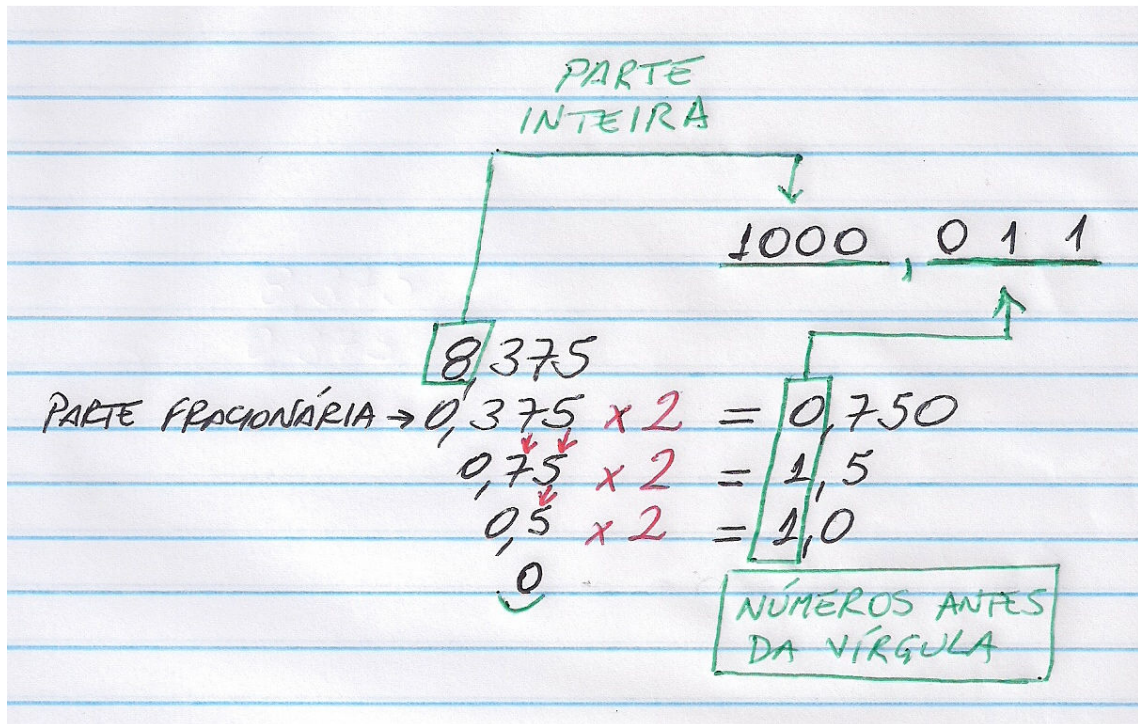 PARTE
INTEIRA
1000,011
8,375
PARTE FRACIONÁRIA → 0,375 x 2 = 0,750
0,75 x 2 = 1,5
0,5 x 2 = 1,0
0
NÚMEROS ANTES
DA VÍRGULA